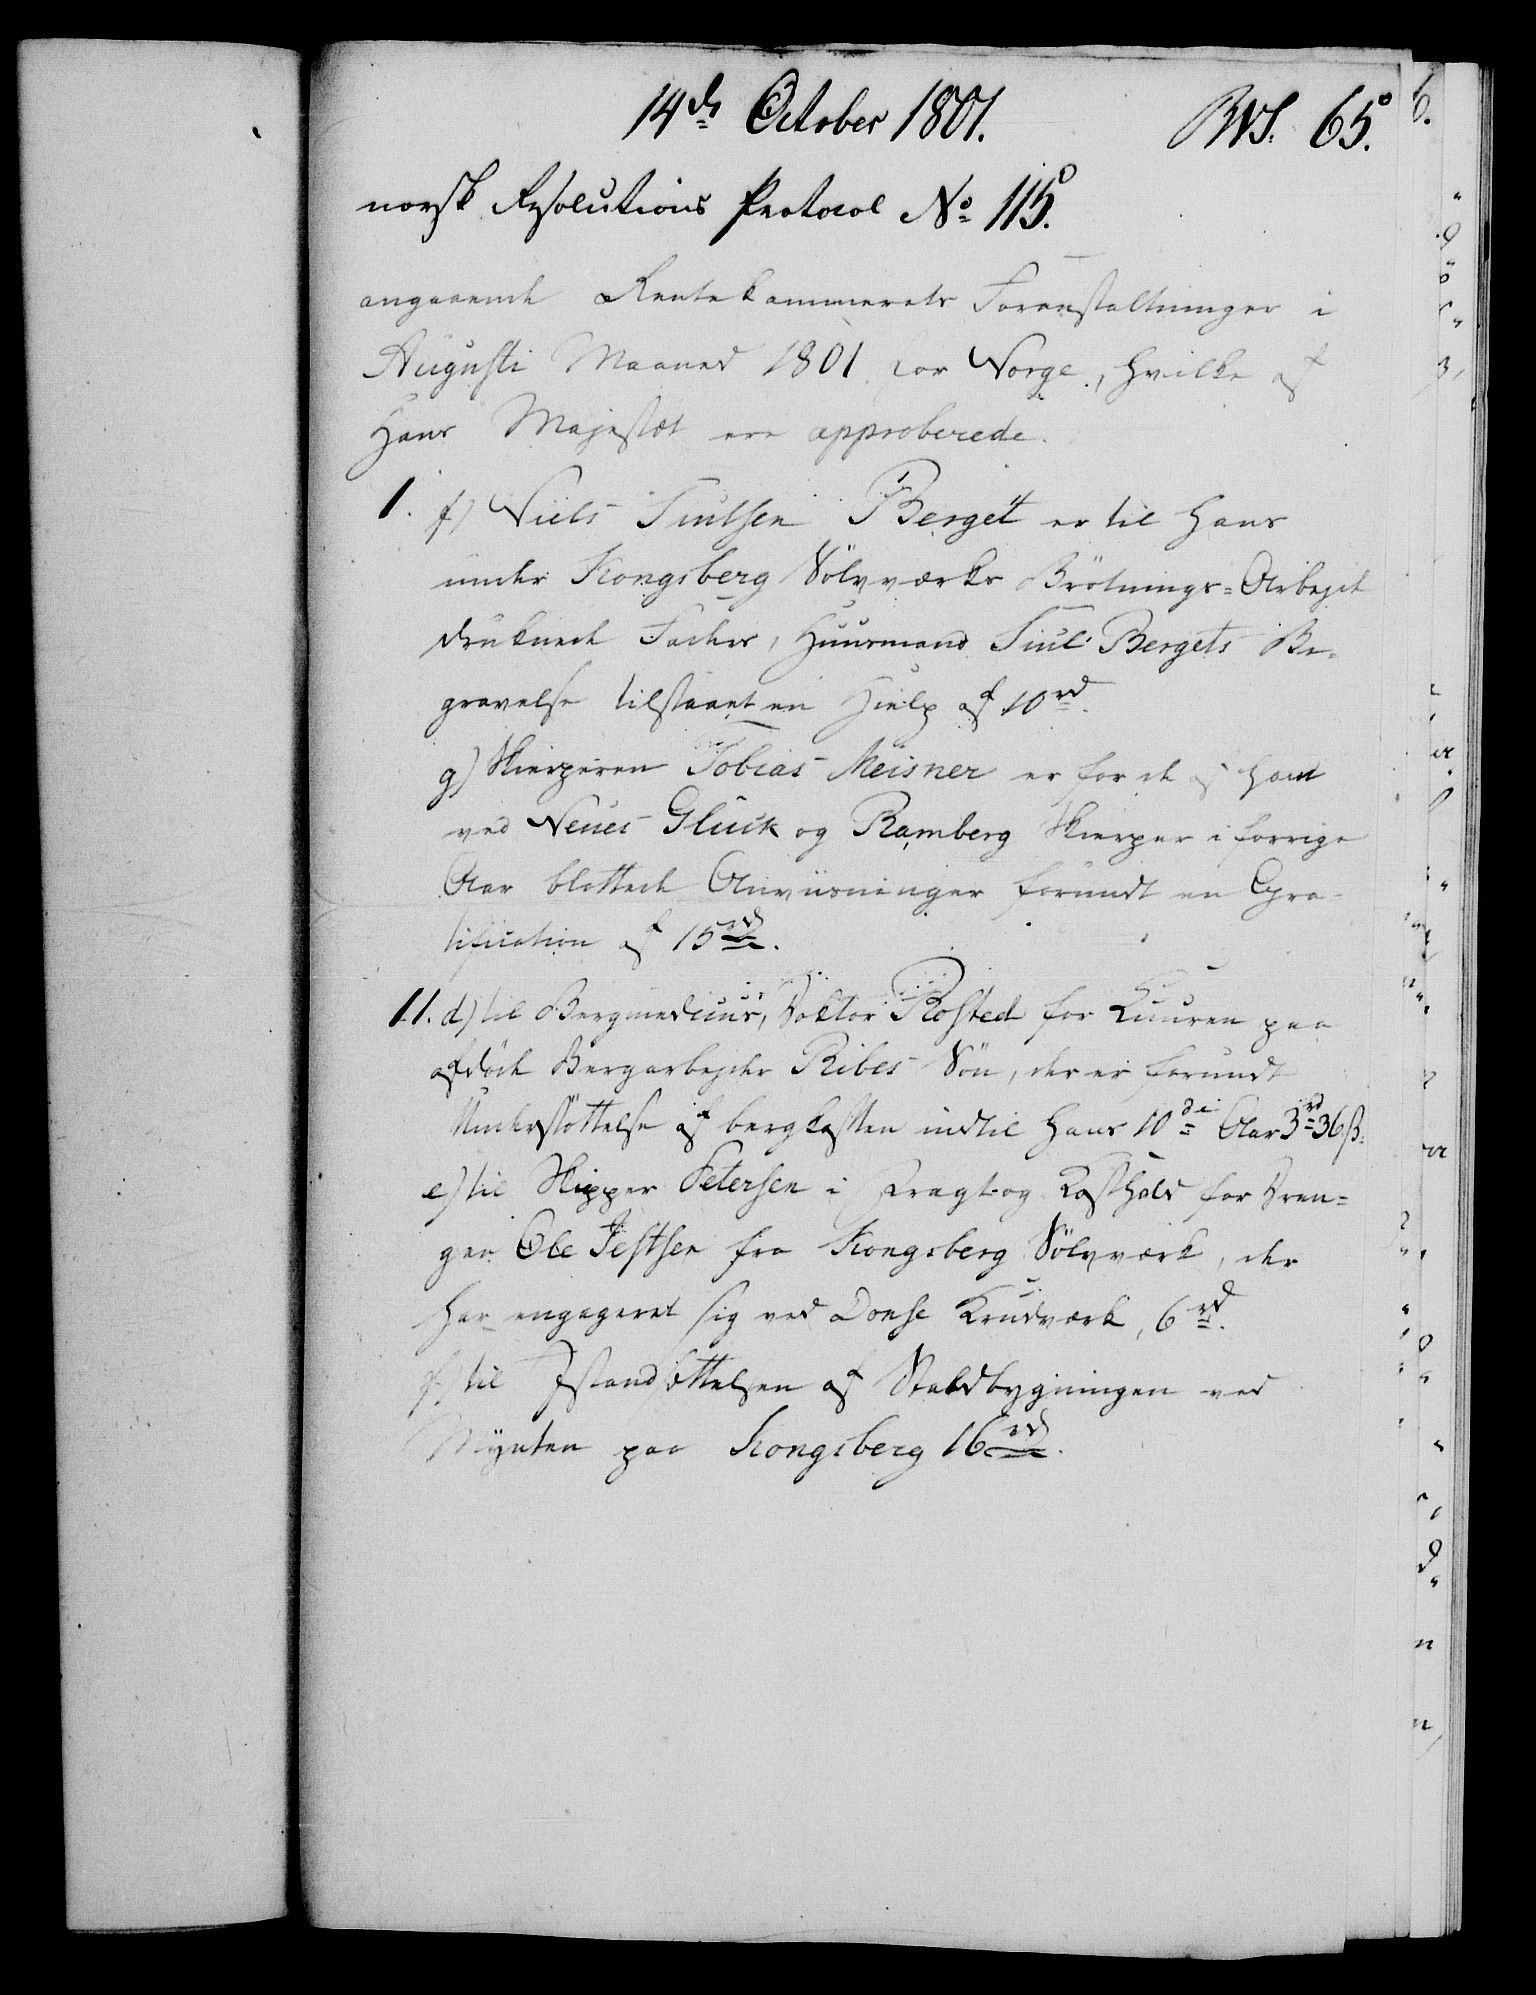 14de October 1801. BVS. 65.
norsk Resolutions Protocol No 115.
angaaende Rentekammerets Foranstaltninger i
Augusti Maaned 1801 for Norge, hvilke af
Hans Majestæt ere approberede.
1. f) Niels Siulsen Berget er til Hans
under Kongsberg Sölvværks Brötnings-Arbejde
druknede Faders, Huusmand Siul Bergets Be-
gravelse tilstaaet en Hielp af 10 rd.
g) Skierperen Tobias Meisner er for de af ham
ved Neues Glück og Ramberg Skierper i forrige
Aar blottede Anviisninger forundt en Gra-
tification af 15 rd.
11. d) til Bergmedicus, Doktor Rosted for Kuuren paa
afdöde Bergarbejder Ribes Sön, der er forundt
Understöttelse af bergkassen indtil Hans 10de Aar 3 rd 36 ß.
e) til Skipper Petersen i Fragt og Kosthold for Dren-
gen Ole Jestsen fra Kongsberg Sölvværk, der
har engageret sig ved Donse Krudværk, 6 rd.
f) til Istandsættelsen af Staldbygningen ved
Mynten paa Kongsberg 16 rd.